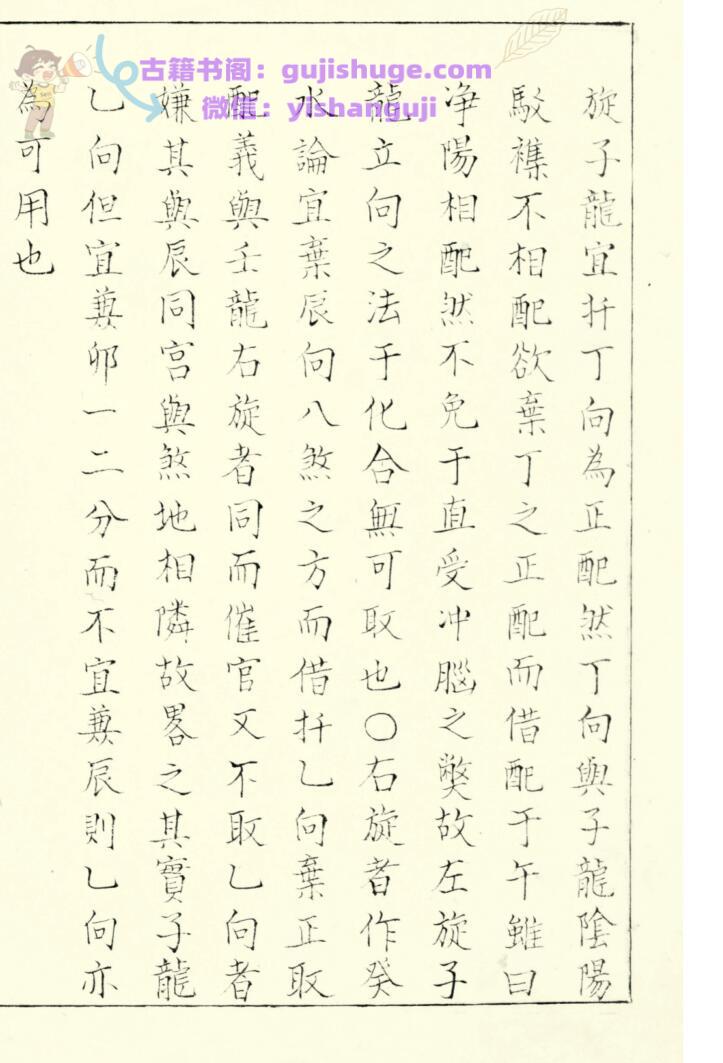 古籍书阁：gujishuge.com
微信：yishanguji
旋子龍宜扦丁向為正配然丁向與子龍陰陽
駁襍不相配欲棄丁之正配而借配于午雖曰
净陽相配然不免于直受冲腦之獘故左旋子
龍立向之法于化合無可取也〇右旋者作癸
水論宜棄辰向八煞之方而借扦乙向棄正取
配義與壬龍右旋者同而催官又不取乙向者
嫌其與辰同宫與煞地相隣故畧之其實子龍
乙向但宜兼卯一二分而不宜兼辰則乙向亦
為可用也